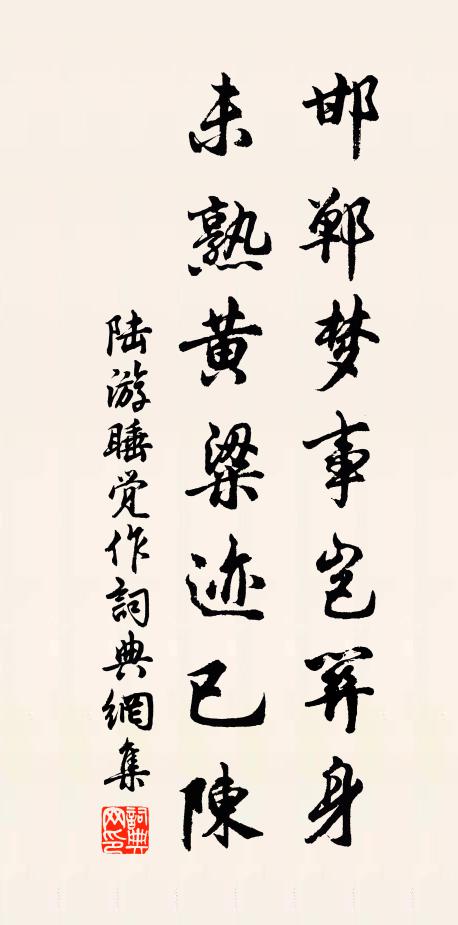 邯郸梦事岂关身
未熟黄粱迹已陳
陆游睡觉作詞典網集
詞典網印